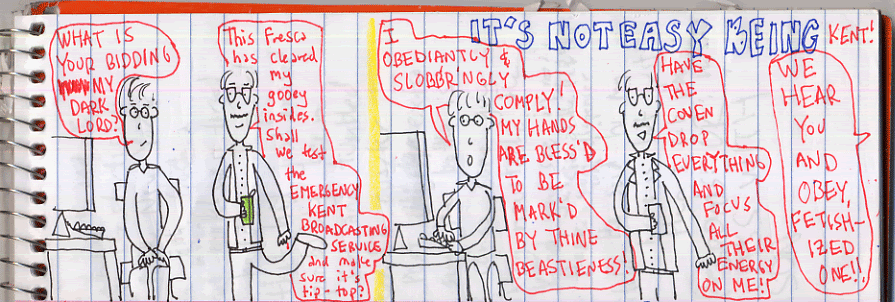 IT'S NOT EASY BEING
KENT!
WHAT IS
YOUR BIDDING
MY
DARK
LORD?
This Fresca
has cleared
my
gooey
insides.
Shall
we test
the
EMERGENCY
KENT
BROADCASTING
SERVICE
and make
sure it's
tip-top?
I
OBEDIANTLY &
SLOBBRINGLY
COMPLY!
MY HANDS
ARE BLESS'D
TO BE
MARK'D
BY THINE
BEASTIENESS!
HAVE
THE
COVEN
DROP
EVERYTHING
AND
FOCUS
ALL
THEIR
ENERGY
ON ME!
WE
HEAR
YOU
AND
OBEY,
FETISH-
IZED
ONE!!